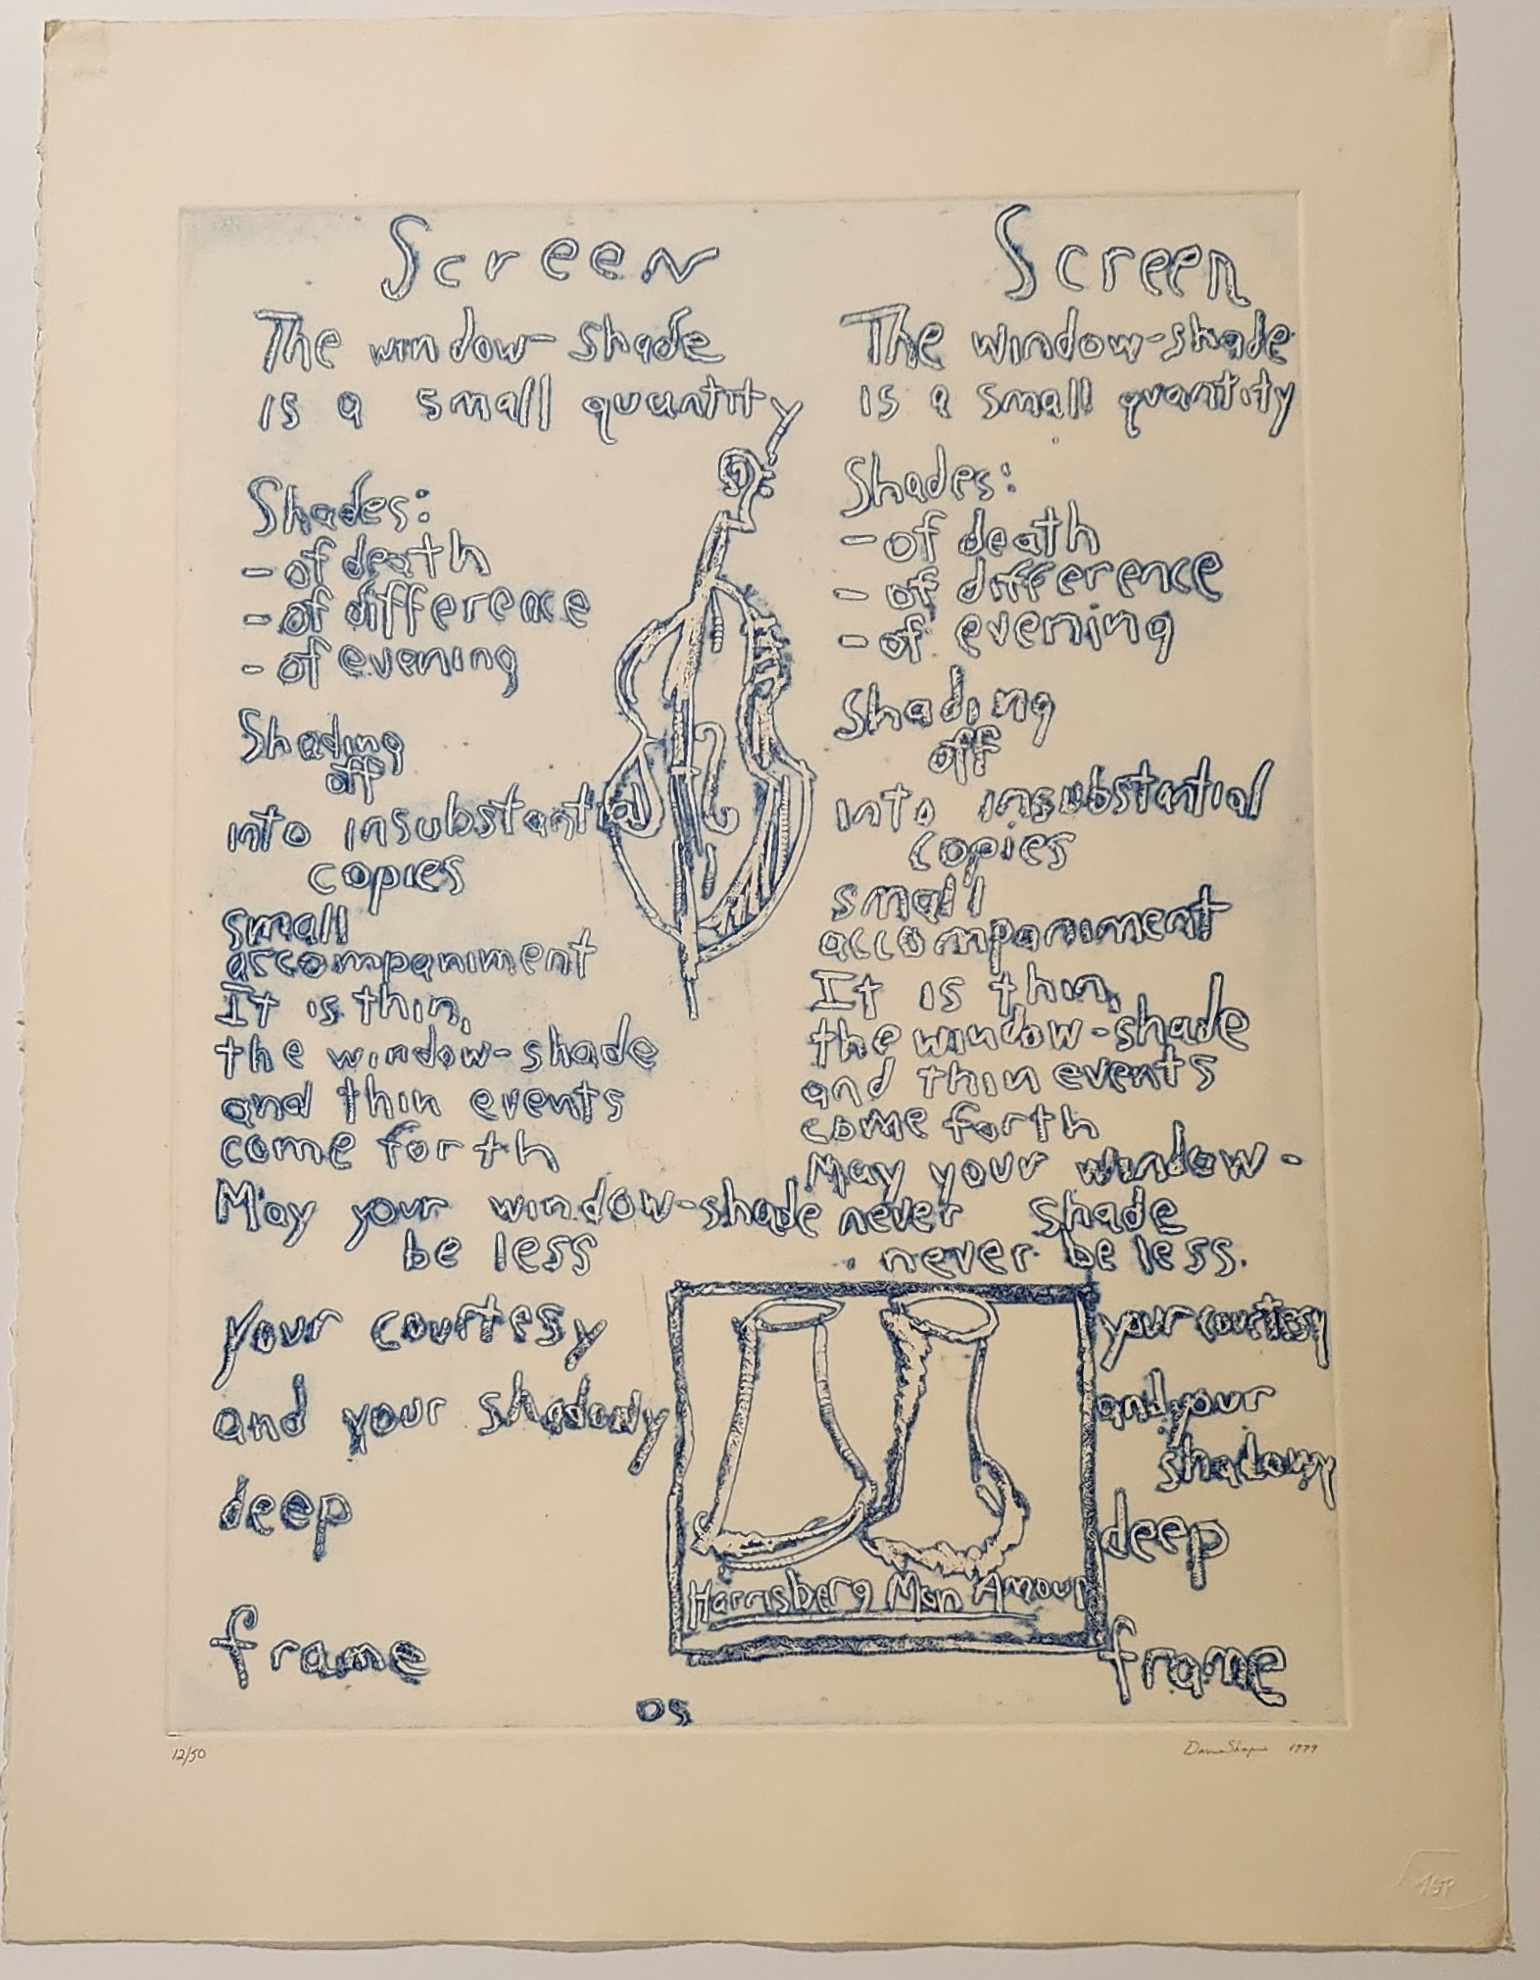 Screen
The window-shade
is a small quantity
Shades:
-of death
-of difference
-of evening
Shading
off
into insubstantial
copies
small
accompaniment
It is thin,
the window-shade
and thin events
come forth
May your window-shade never
be less
your courtesy
and your shadowy
deep
frame
Screen
The window-shade
is a small quantity
Shades:
-of death
-of difference
-of evening
Shading
off
into insubstantial
copies
small
accompaniment
It is thin,
the window-shade
and thin events
come forth
May your window-
shade
never be less.
your courtesy
and your
shadowy
deep
frame
Harrisberg Mon Amour
DS
12/50
David Shapiro 1979